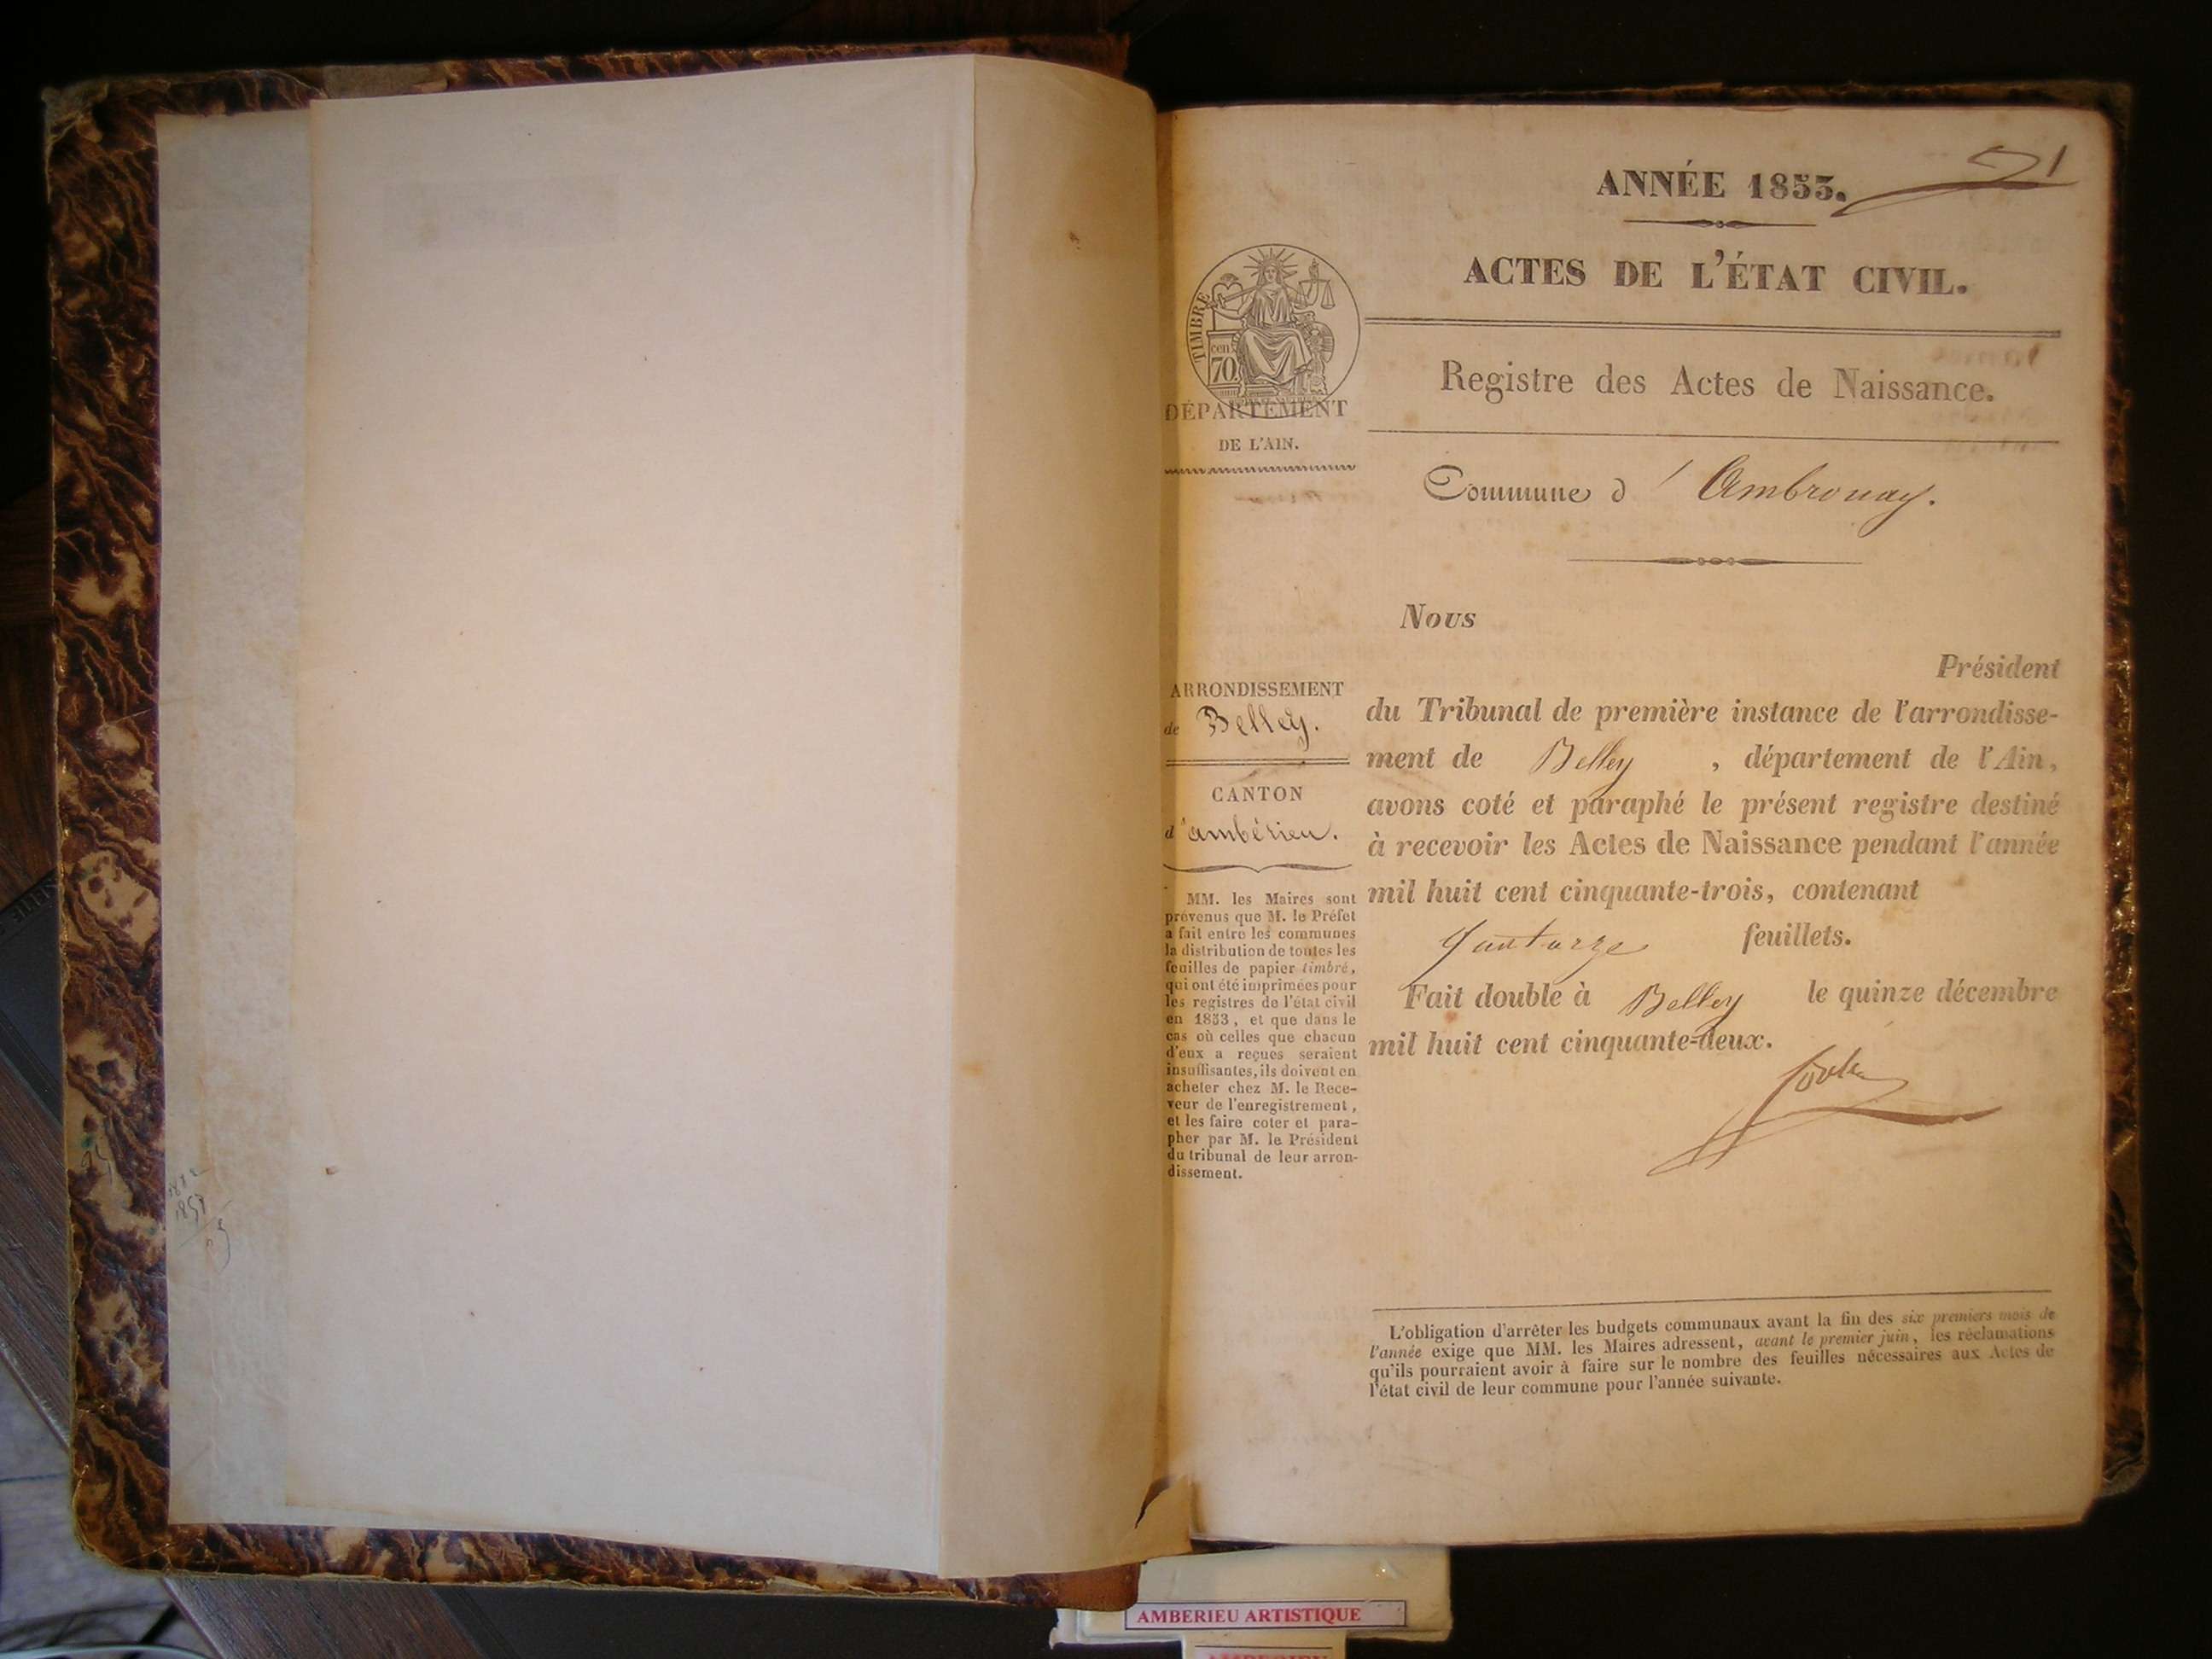 ANNÉE 1853.
ACTES DE L'ÉTAT CIVIL.
TIMBRE
cen
70.
DÉPARTEMENT
DE L'AIN.
Registre des Actes de Naissance.
Commune d'Ambronay.
Nous
Président
du Tribunal de première instance de l'arrondisse-
ment de Belley, département de l'Ain,
avons coté et paraphé le présent registre destiné
à recevoir les Actes de Naissance pendant l'année
mil huit cent cinquante-trois, contenant
feuillets.
Fait double à Belley le quinze décembre
mil huit cent cinquante-deux.
ARRONDISSEMENT
de Belley.
CANTON
d'ambérieu.
MM. les Maires sont
prévenus que M. le Préfet
a fait entre les communes
la distribution de toutes les
feuilles de papier timbré,
qui ont été imprimées pour
les registres de l'état civil
en 1853, et que dans le
cas où celles que chacun
d'eux a reçues seraient
insuffisantes, ils doivent en
acheter chez M. le Rece-
veur de l'enregistrement,
et les faire coter et para-
pher par M. le Président
du tribunal de leur arron-
dissement.
L'obligation d'arrêter les budgets communaux avant la fin des six premiers mois de
l'année exige que MM. les Maires adressent, avant le premier juin, les réclamations
qu'ils pourraient avoir à faire sur le nombre des feuilles nécessaires aux Actes de
l'état civil de leur commune pour l'année suivante.
AMBERIEU ARTISTIQUE